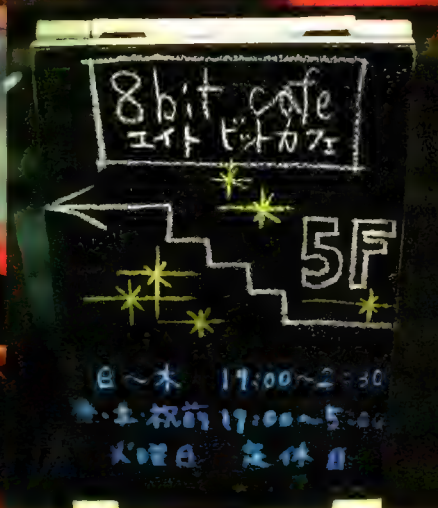 8bit cafe
エイト ビットカフェ
5F
日～木 19:00～2:30
金・土・祝前 19:00～5:00
火曜日 定休日